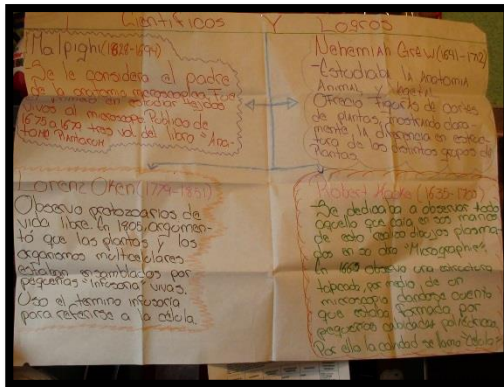 Cientificos Y Logros
Malpighi (1628-1694)
-Se le considera el padre
de la anatomia microscopica. Fue
el primero en estudiar tejidos
vivos al microscopio. Publico de
1675 a 1679 tres vol. del libro "Ana-
tome Plantarum
Nehemiah Grew (1641-1712)
-Estudiaba la Anatomia
Animal y Vegetal
Ofrecio figuras de cortes
de plantas, mostrando clara-
mente, la diferencia en estruc-
tura de los distintos grupos de
plantas.
Lorenz Oken (1779-1851)
Observo protozoarios de
vida libre. En 1805, argumen-
tó que las plantas y los
organismos multicelulares
estaban ensamblados por
pequeñas "infusoria" vivas.
Uso el termino infusoria
para referirse a la célula.
Robert Hooke (1635-1703)
-Se dedicaba a observar todo
aquello que caia en sus manos
de esto realizo dibujos plasma-
dos en su obra "Micrographia"
En observo una estructura
por medio de un
microscopio dandose cuenta
que estaba formada por
pequeñas cavidades
Por ello la cavidad se llamo "Célula"